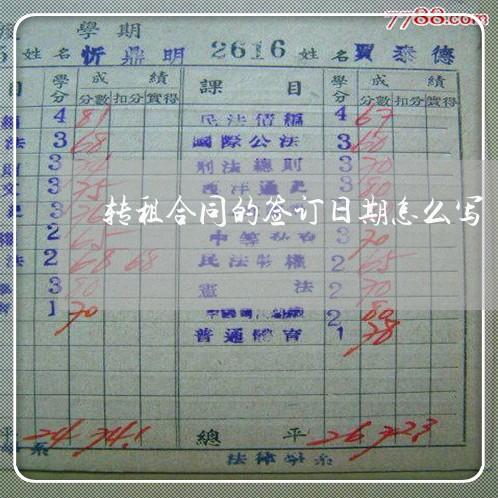 7788.com
學期
姓名 忻鼎明 2616 姓名 賈泰德
目 學分 成績 課目 學分 成績
分數 扣分 實得 分數 扣分 實得
4 81 民法債編 4 67
法 3 68 國際公法 3 60
則 3 刑法總則 3 70
文 3 75 西洋通史 3 80
转租合同的签订日期怎么写
權 2 65 3 70
法 2 68 68 民法物權 2 65
3 80 憲法 2 70
育 1 70 2 80
普通體育 1 78
平 24 74.1 總平 26 72.3
系 法律學系